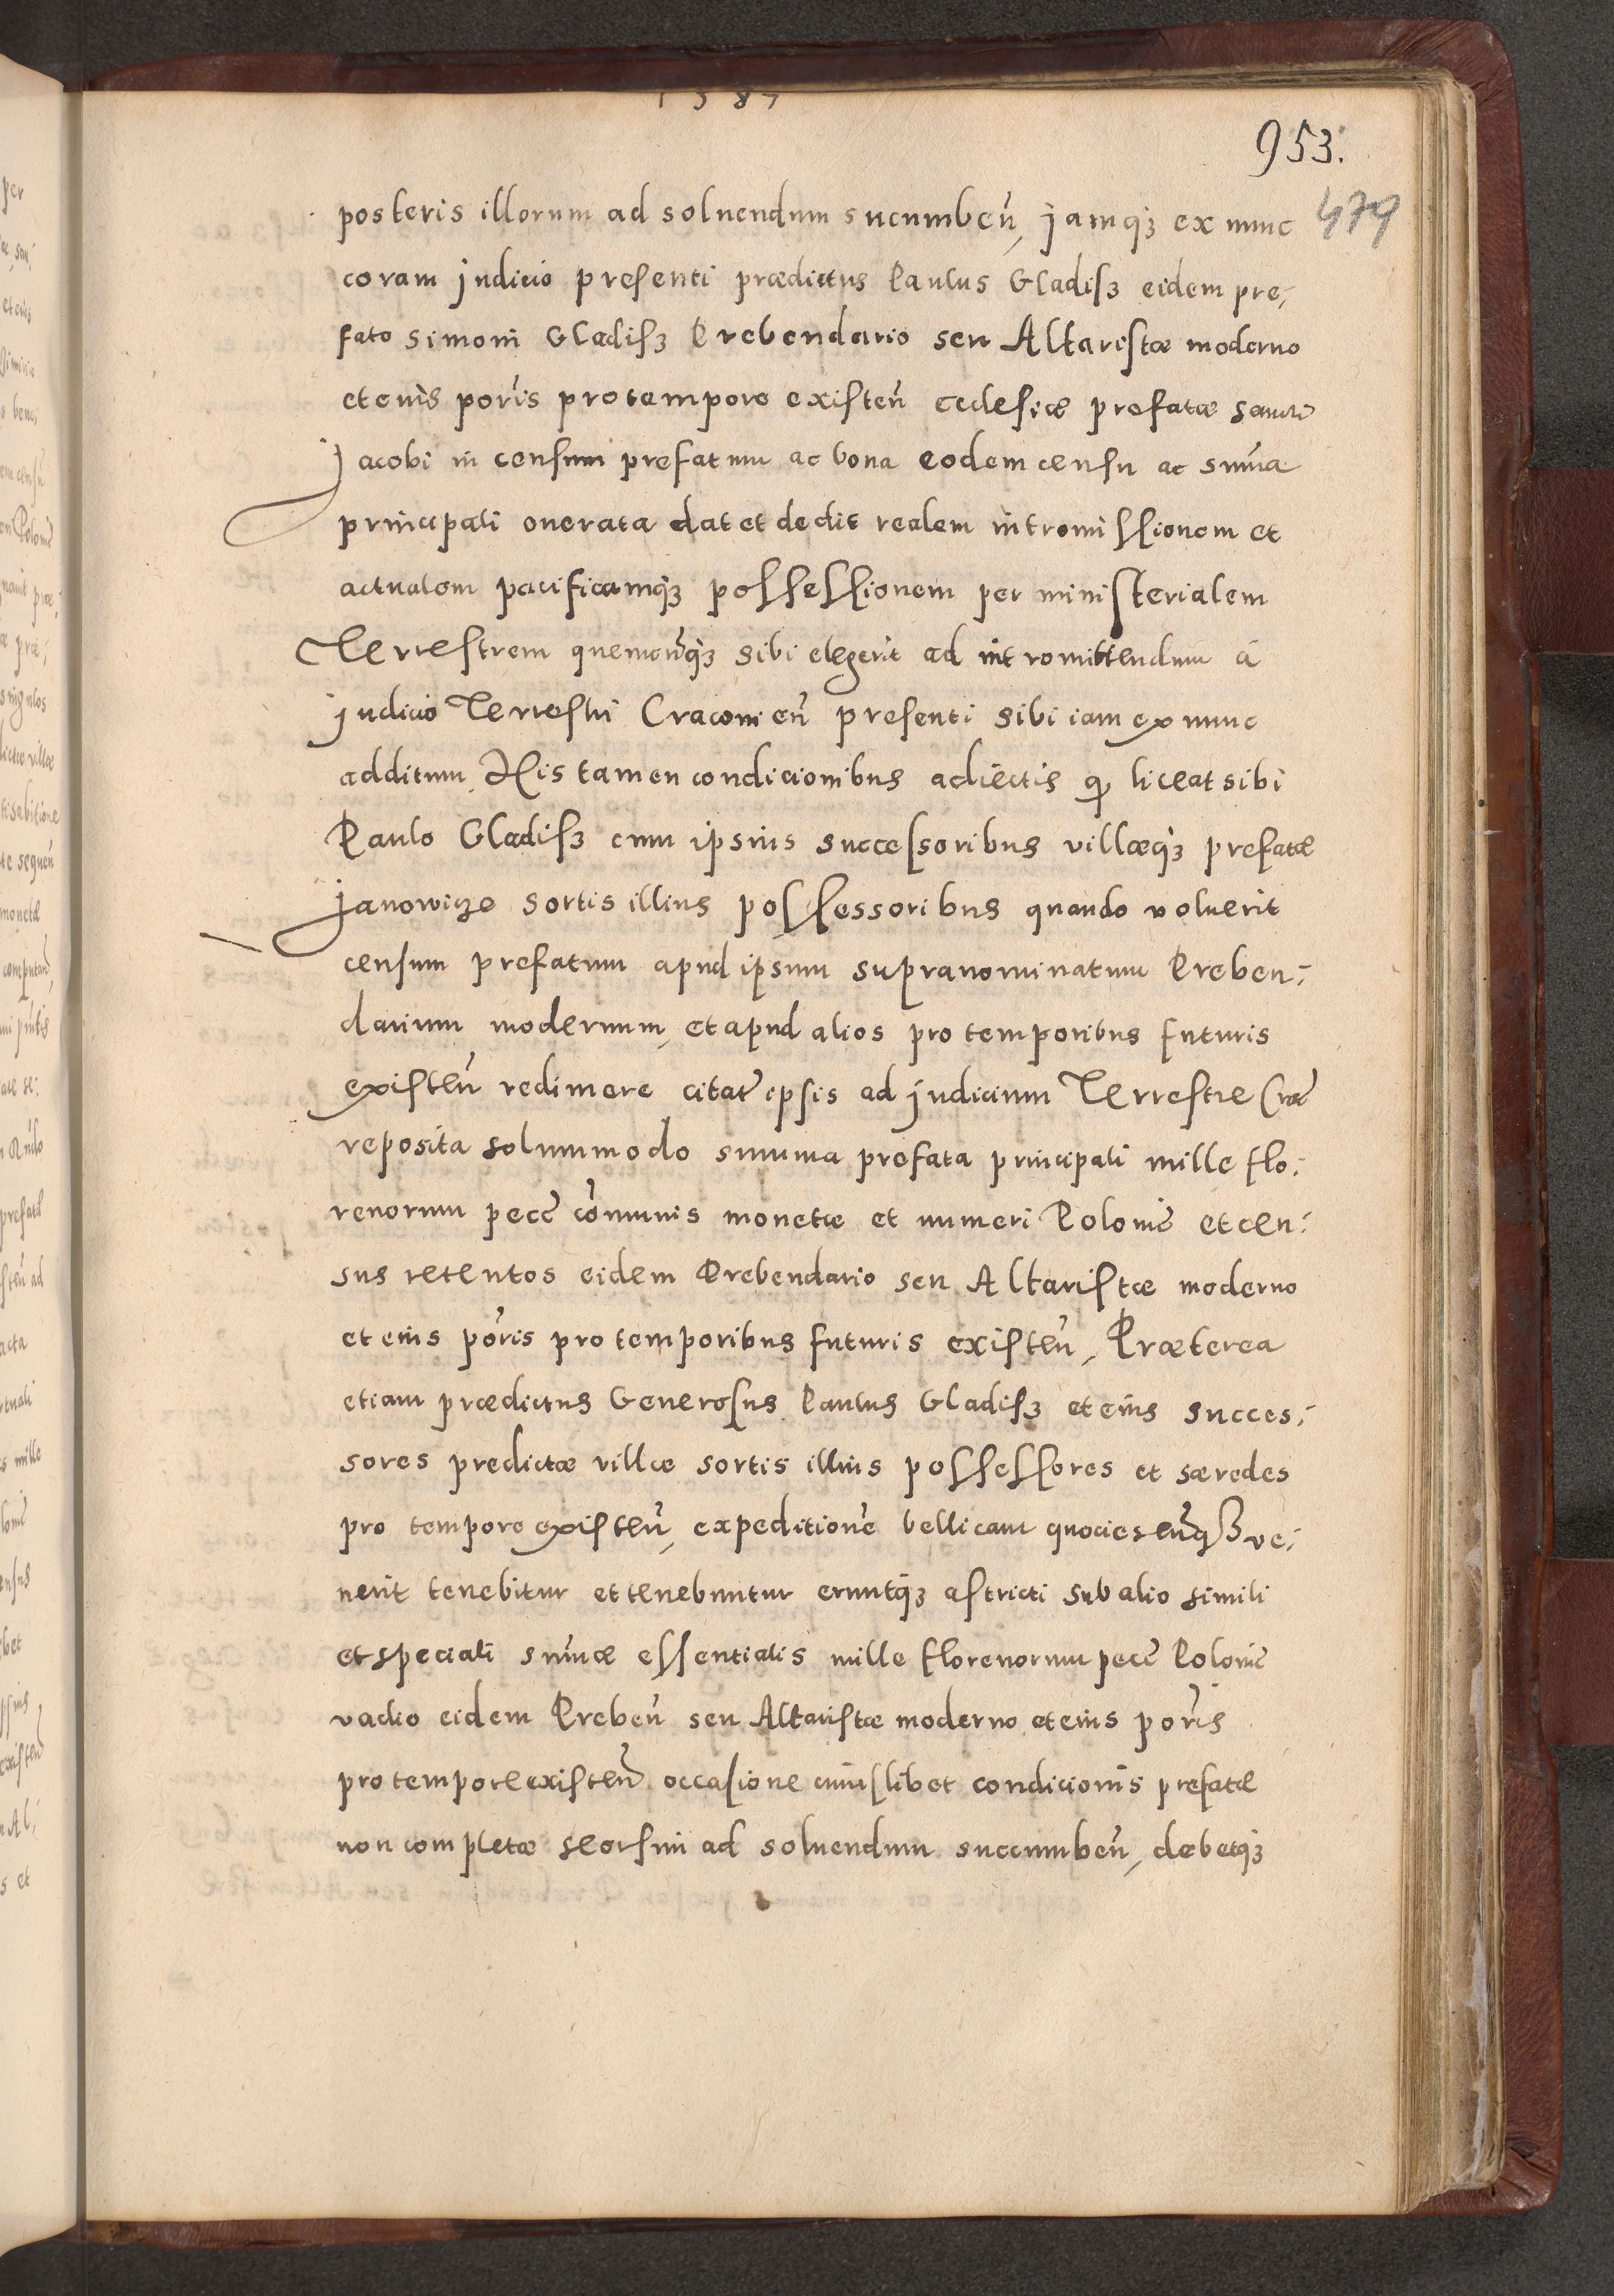 1587
953.
479
posteris illorum ad soluendum sucumbeñ, jamq̃ȝ ex nunc
coram judicio presenti prædictus Paulus Gladisz eidem pre-
fato Simoni Gladisz Prebendario seu Altaristæ moderno
et eius poris̃ pro tempore existeñ ecclesiæ prefatæ Sancti
Jacobi in censum prefatum ac bona eodem censu ac sum̃a
principali onerata dat et dedit realem intromissionem et
actualem pacificamq̃ȝ possessionem per ministerialem
Terrestrem quemcunq̃ȝ sibi elegerit ad intromittendum a
judicio Terrestri Cracouieñ presenti sibi iam ex nunc
additum, His tamen condicionibus adiectis q̃ liceat sibi
Paulo Gladisz cum ipsius successoribus villæq̃ȝ prefatæ
Janowicze sortis illius possessoribus quando voluerit
censum prefatum apud ipsum supranominatum Preben-
darium modernum, et apud alios pro temporibus futuris
existeñ redimere citat̃ ipsis ad judicium Terrestre Crac̃
reposita solummodo summa prefata principali mille flo-
renorum pecc̃ com̃unis monetæ et numeri Polonic̃ et cen-
sus retentos eidem Prebendario seu Altaristæ moderno
et eius poris̃ pro temporibus futuris existeñ, Præterea
etiam prædictus Generosus Paulus Gladisz et eius succes-
sores predictæ villæ sortis illius possessores et hæredes
pro tempore existeñ, expeditione͂ bellicam quociescunq̃ȝ ve-
nerit tenebitur et tenebuntur eruntq̃ȝ astricti sub alio simili
et speciali sum̃æ essentialis mille florenorum pecc̃ Polonic̃
vadio eidem Prebeñ seu Altaristæ moderno et eius poris̃
pro tempore existeñ occasione cuiuslibet condicionis prefatæ
non completæ seorsim ad soluendum succumbeñ, debetq̃ȝ